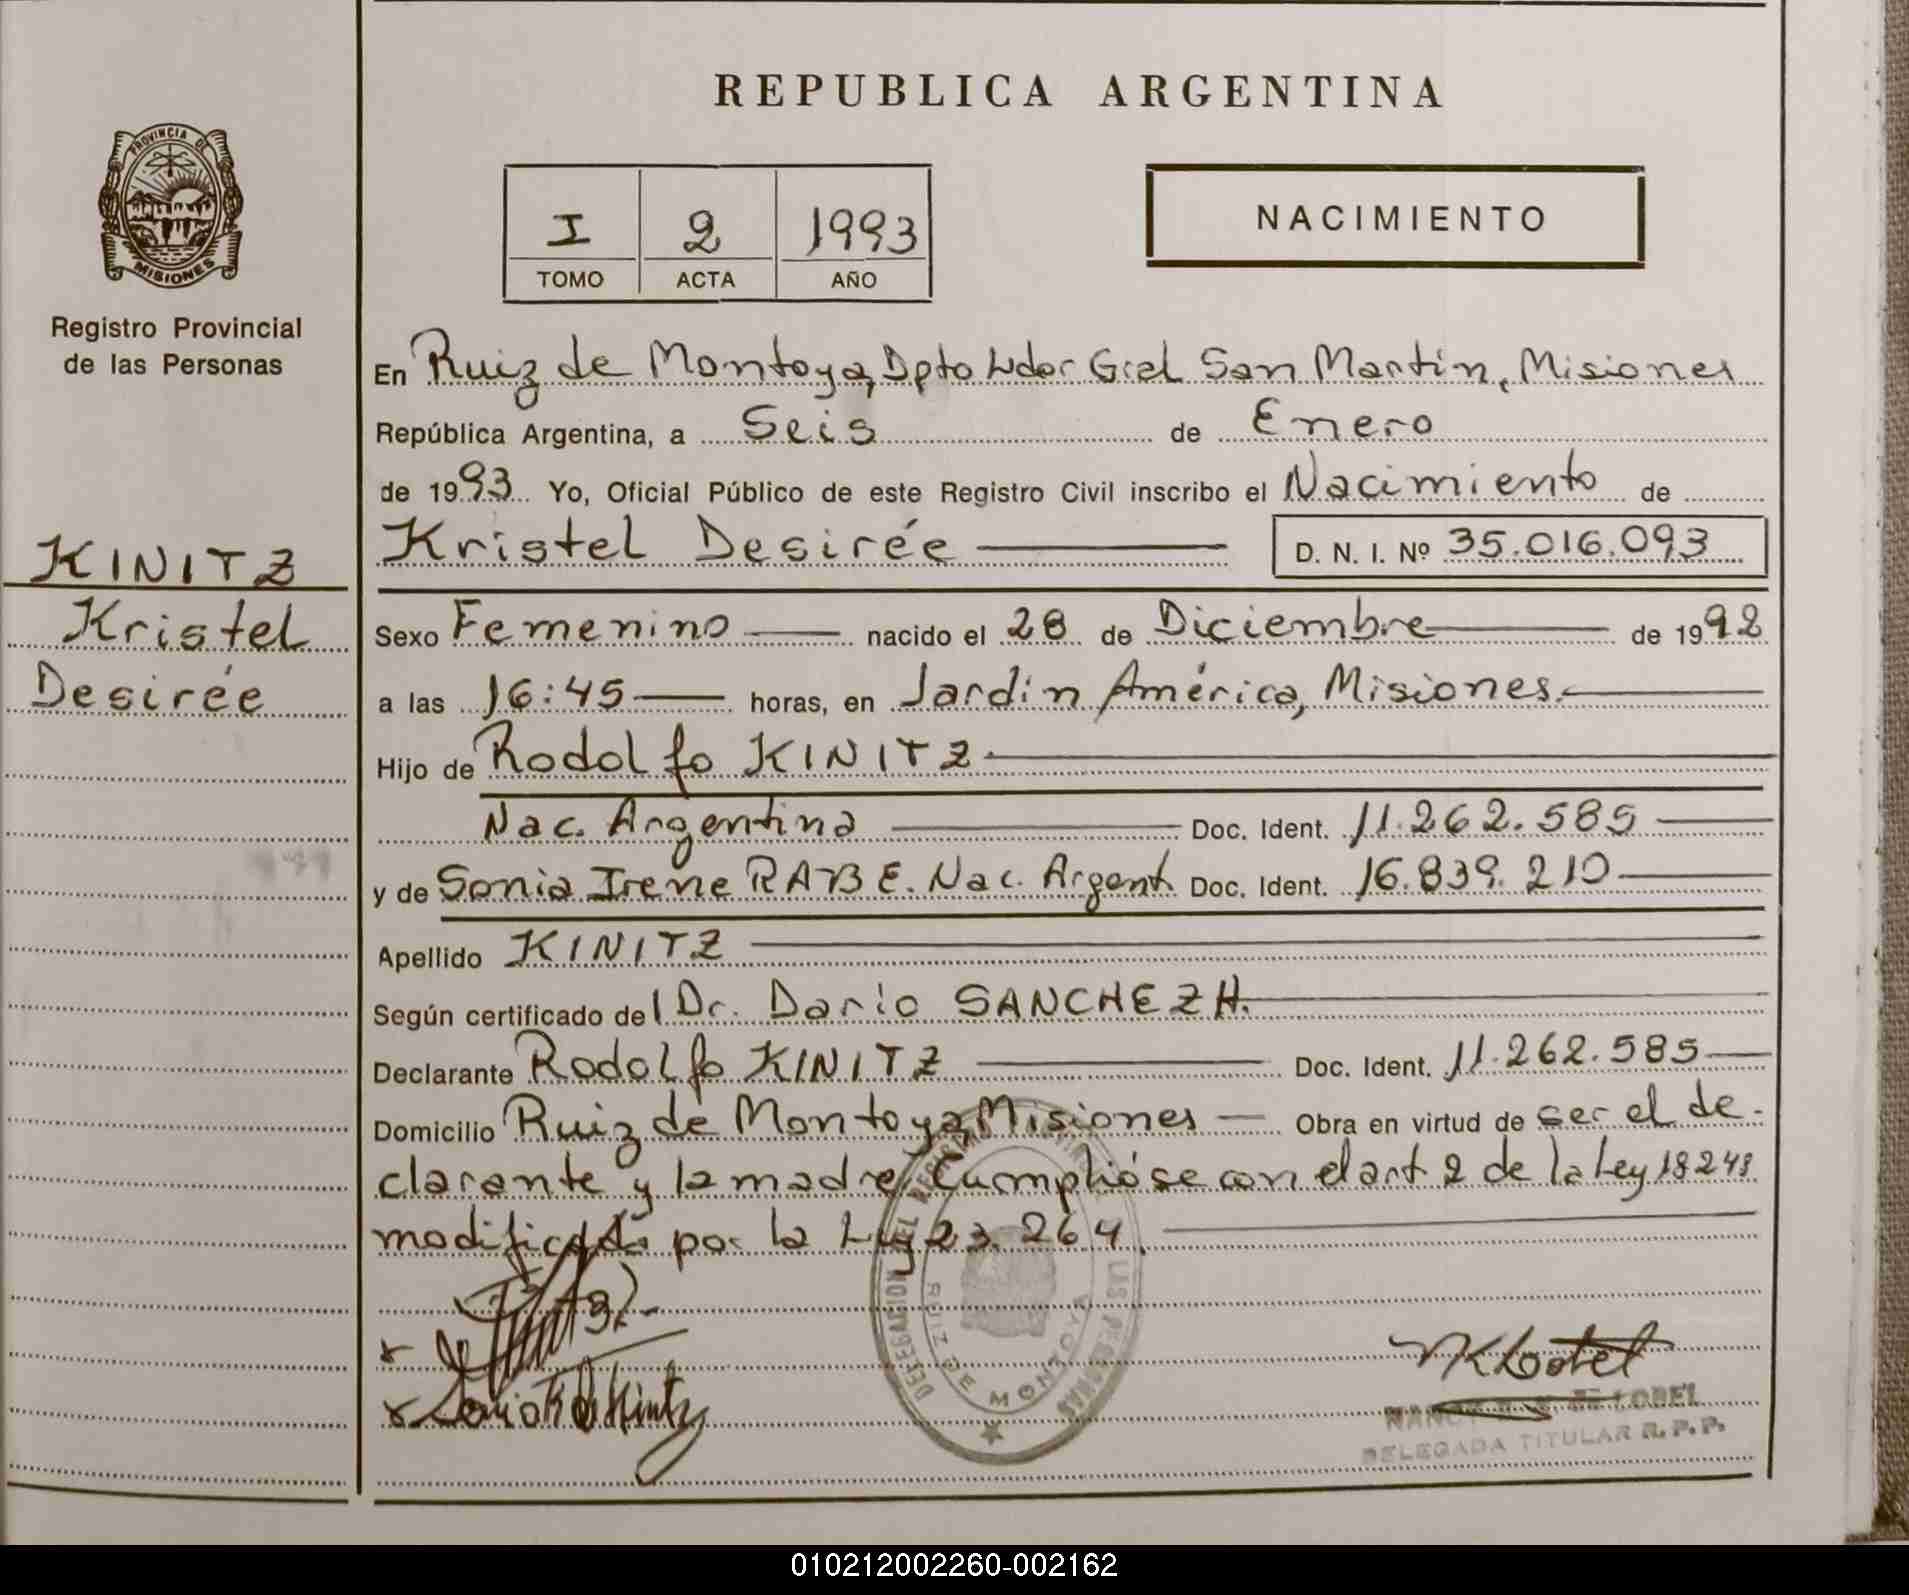 REPUBLICA ARGENTINA
PROVINCIA DE
MISIONES
Registro Provincial
de las Personas
I 2 1993
TOMO ACTA AÑO
NACIMIENTO
En Ruiz de Montoya, Dpto Ldor Gral San Martin, Misiones
República Argentina, a Seis de Enero
de 1993 Yo, Oficial Público de este Registro Civil inscribo el Nacimiento de
Kristel Desirée D. N. I. Nº 35.016.093
KINITZ
Kristel
Desirée
Sexo Femenino nacido el 28 de Diciembre de 1992
a las 16:45 horas, en Jardin América, Misiones.
Hijo de Rodolfo KINITZ
Nac. Argentina Doc. Ident. 11.262.585
y de Sonia Irene RABE. Nac. Argent. Doc. Ident. 16.839.210
Apellido KINITZ
Según certificado del Dr. Dario SANCHEZ H.
Declarante Rodolfo KINITZ Doc. Ident. 11.262.585
Domicilio Ruiz de Montoya, Misiones Obra en virtud de ser el de-
clarante y la madre. Cumplióse con el art 2 de la Ley 18248
modificada por la Ley 23.264.
DELEGACION DEL LAS PERSONAS
RUIZ DE MONTOYA
DE LOBEL
DELEGADA TITULAR R. P. P.
010212002260-002162